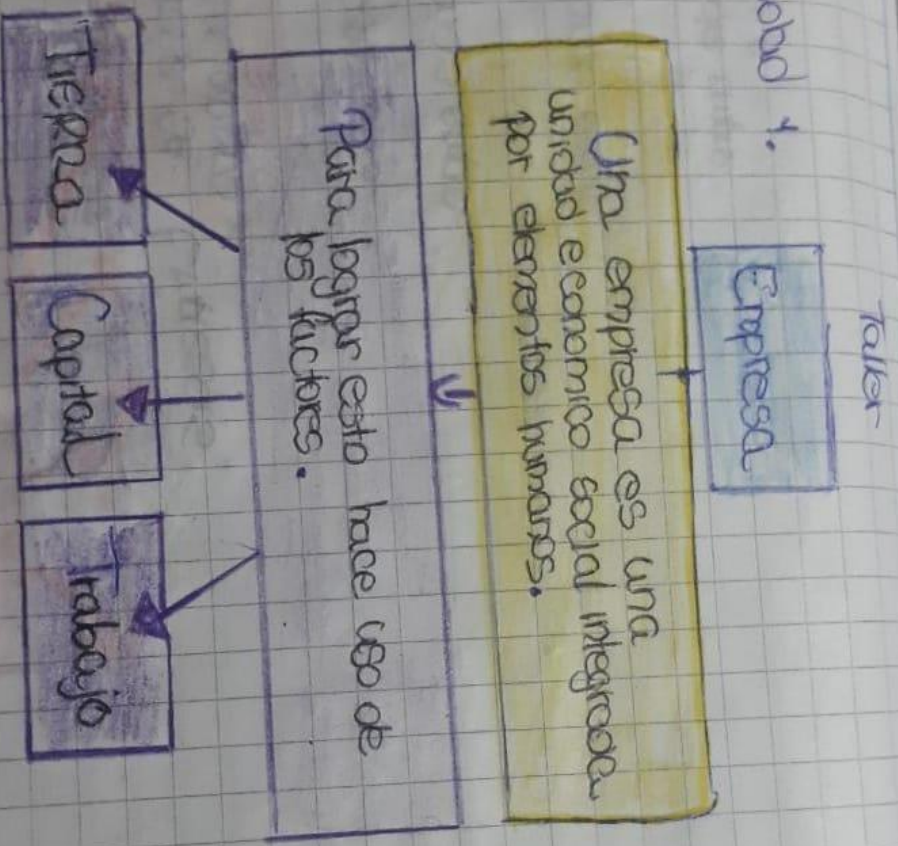 Taller
1.
Empresa
Una empresa es una
unidad economico social integrada
por elementos humanos.
Para lograr esto hace uso de
los factores.
Tierra
Capital
Trabajo